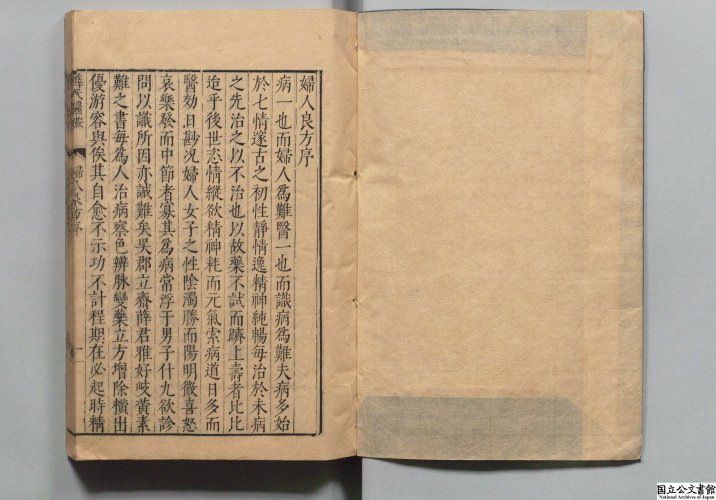 婦人良方序
病一也而婦人爲難醫一也而識病爲難夫病多始
於七情邃古之初性靜情逸精神純暢毎治於未病
之先治之以不治也以故藥不試而躋上壽者比比
迨乎後世恣情縱欲精神耗而元氣索病道日多而
醫効日尠况婦人女子之性陰濁勝而陽明微喜怒
哀樂發而中節者寡其爲病常浮于男子什九欲診
問以識所因亦誠難矣吴郡立齋薛君雅好岐黄素
難之書每爲人治病察色辨脉變藥立方增除横出
優游容與俟其自愈不示功不計程期在必起時精
薛氏醫按
婦人良方序
一
国立公文書館
National Archives of Japan